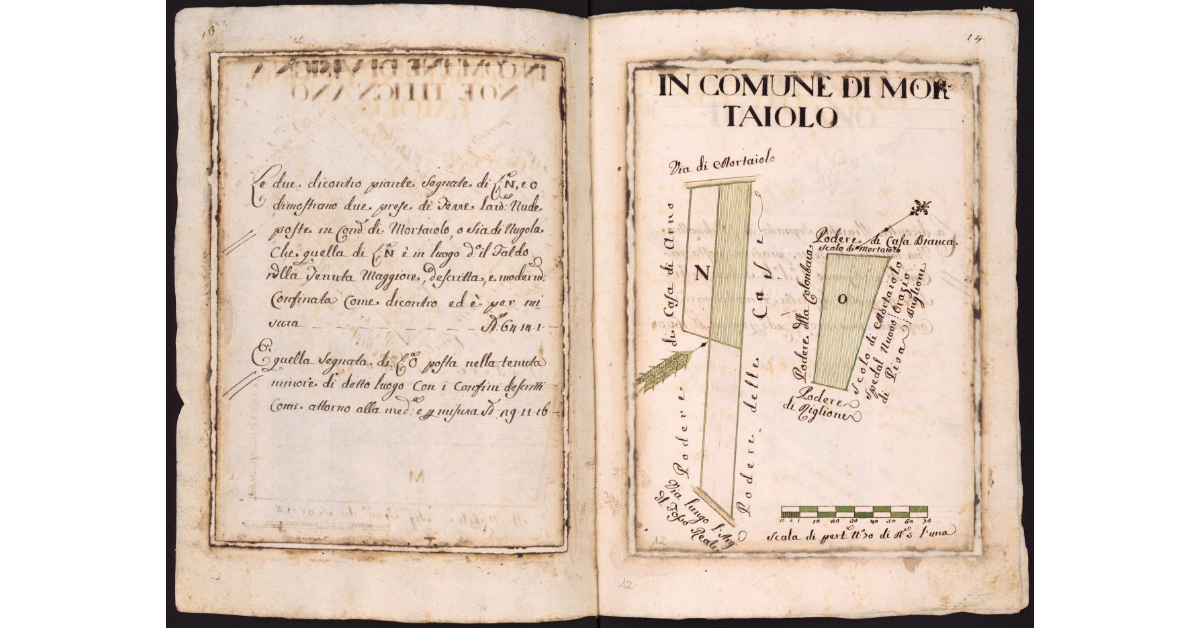 Le due dicontro piante Segnate di N, e O
dimostrano due prese di Terre Nude
poste in di Mortaiolo, o sia di Nugola
Che quella di N è in luogo d.º il Faldo
nlla Tenuta Maggiore, descritta, e modern.
Confinata Come dicontro ed è per mi
sura 64.14.1
E quella Segnata di O posta nella tenuta
minore di detto luogo Con i Confini descritti
Come attorno alla med.ª e misura 119.11.16
M
14
IN COMUNE DI MOR
TAIOLO
Via di Mortaiolo
Podere di Casa di Arno
N
Podere delle Case
Via lungo l'Arg
d Foso Reale
Podere di Casa Bianca
Scolo di Mortaiolo
Podere dlla Colombaia
O
Scolo di Mortaiolo
Spedal Nuovo
di Pisa
Orazio
Riglione
Podere
di Riglione
10 20 30 40 50 60 70
Scala di pert. n.º 70 di l'una
12
12